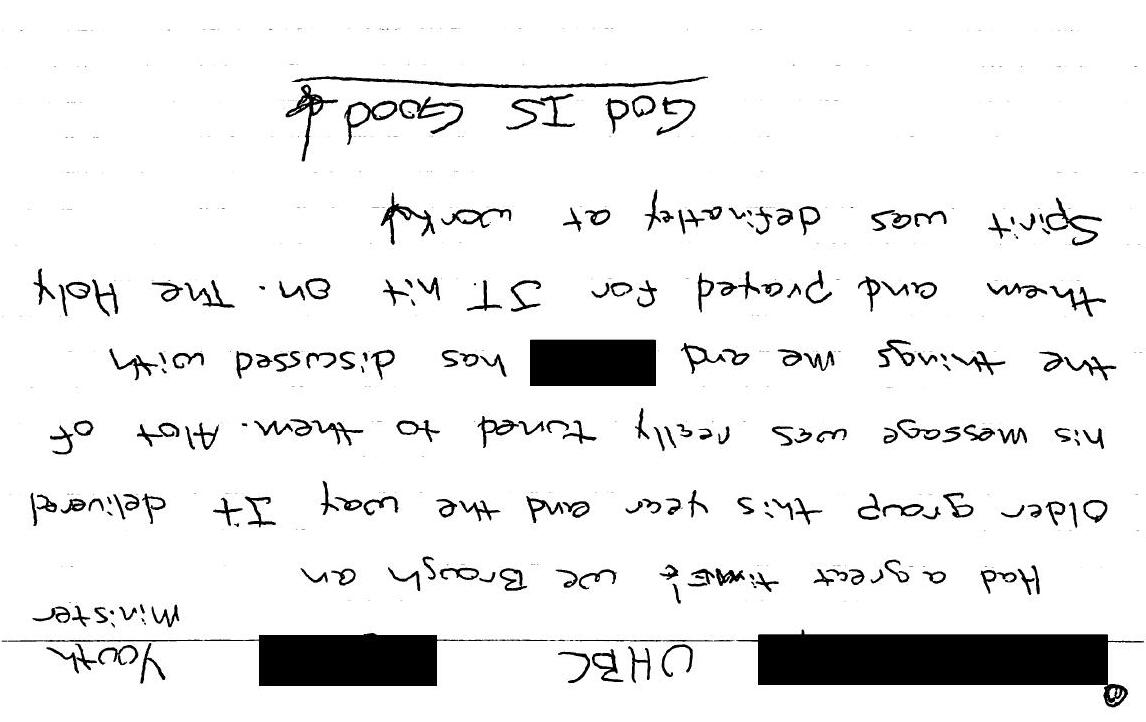 UHBC Youth
Minister
Had a great time! we Brough an
Older group this year and the way It delivered
his message was really tuned to them. Alot of
the things me and has discussed with
them and prayed for JT hit on. The Holy
Spirit was definatley at work!
God IS Good!